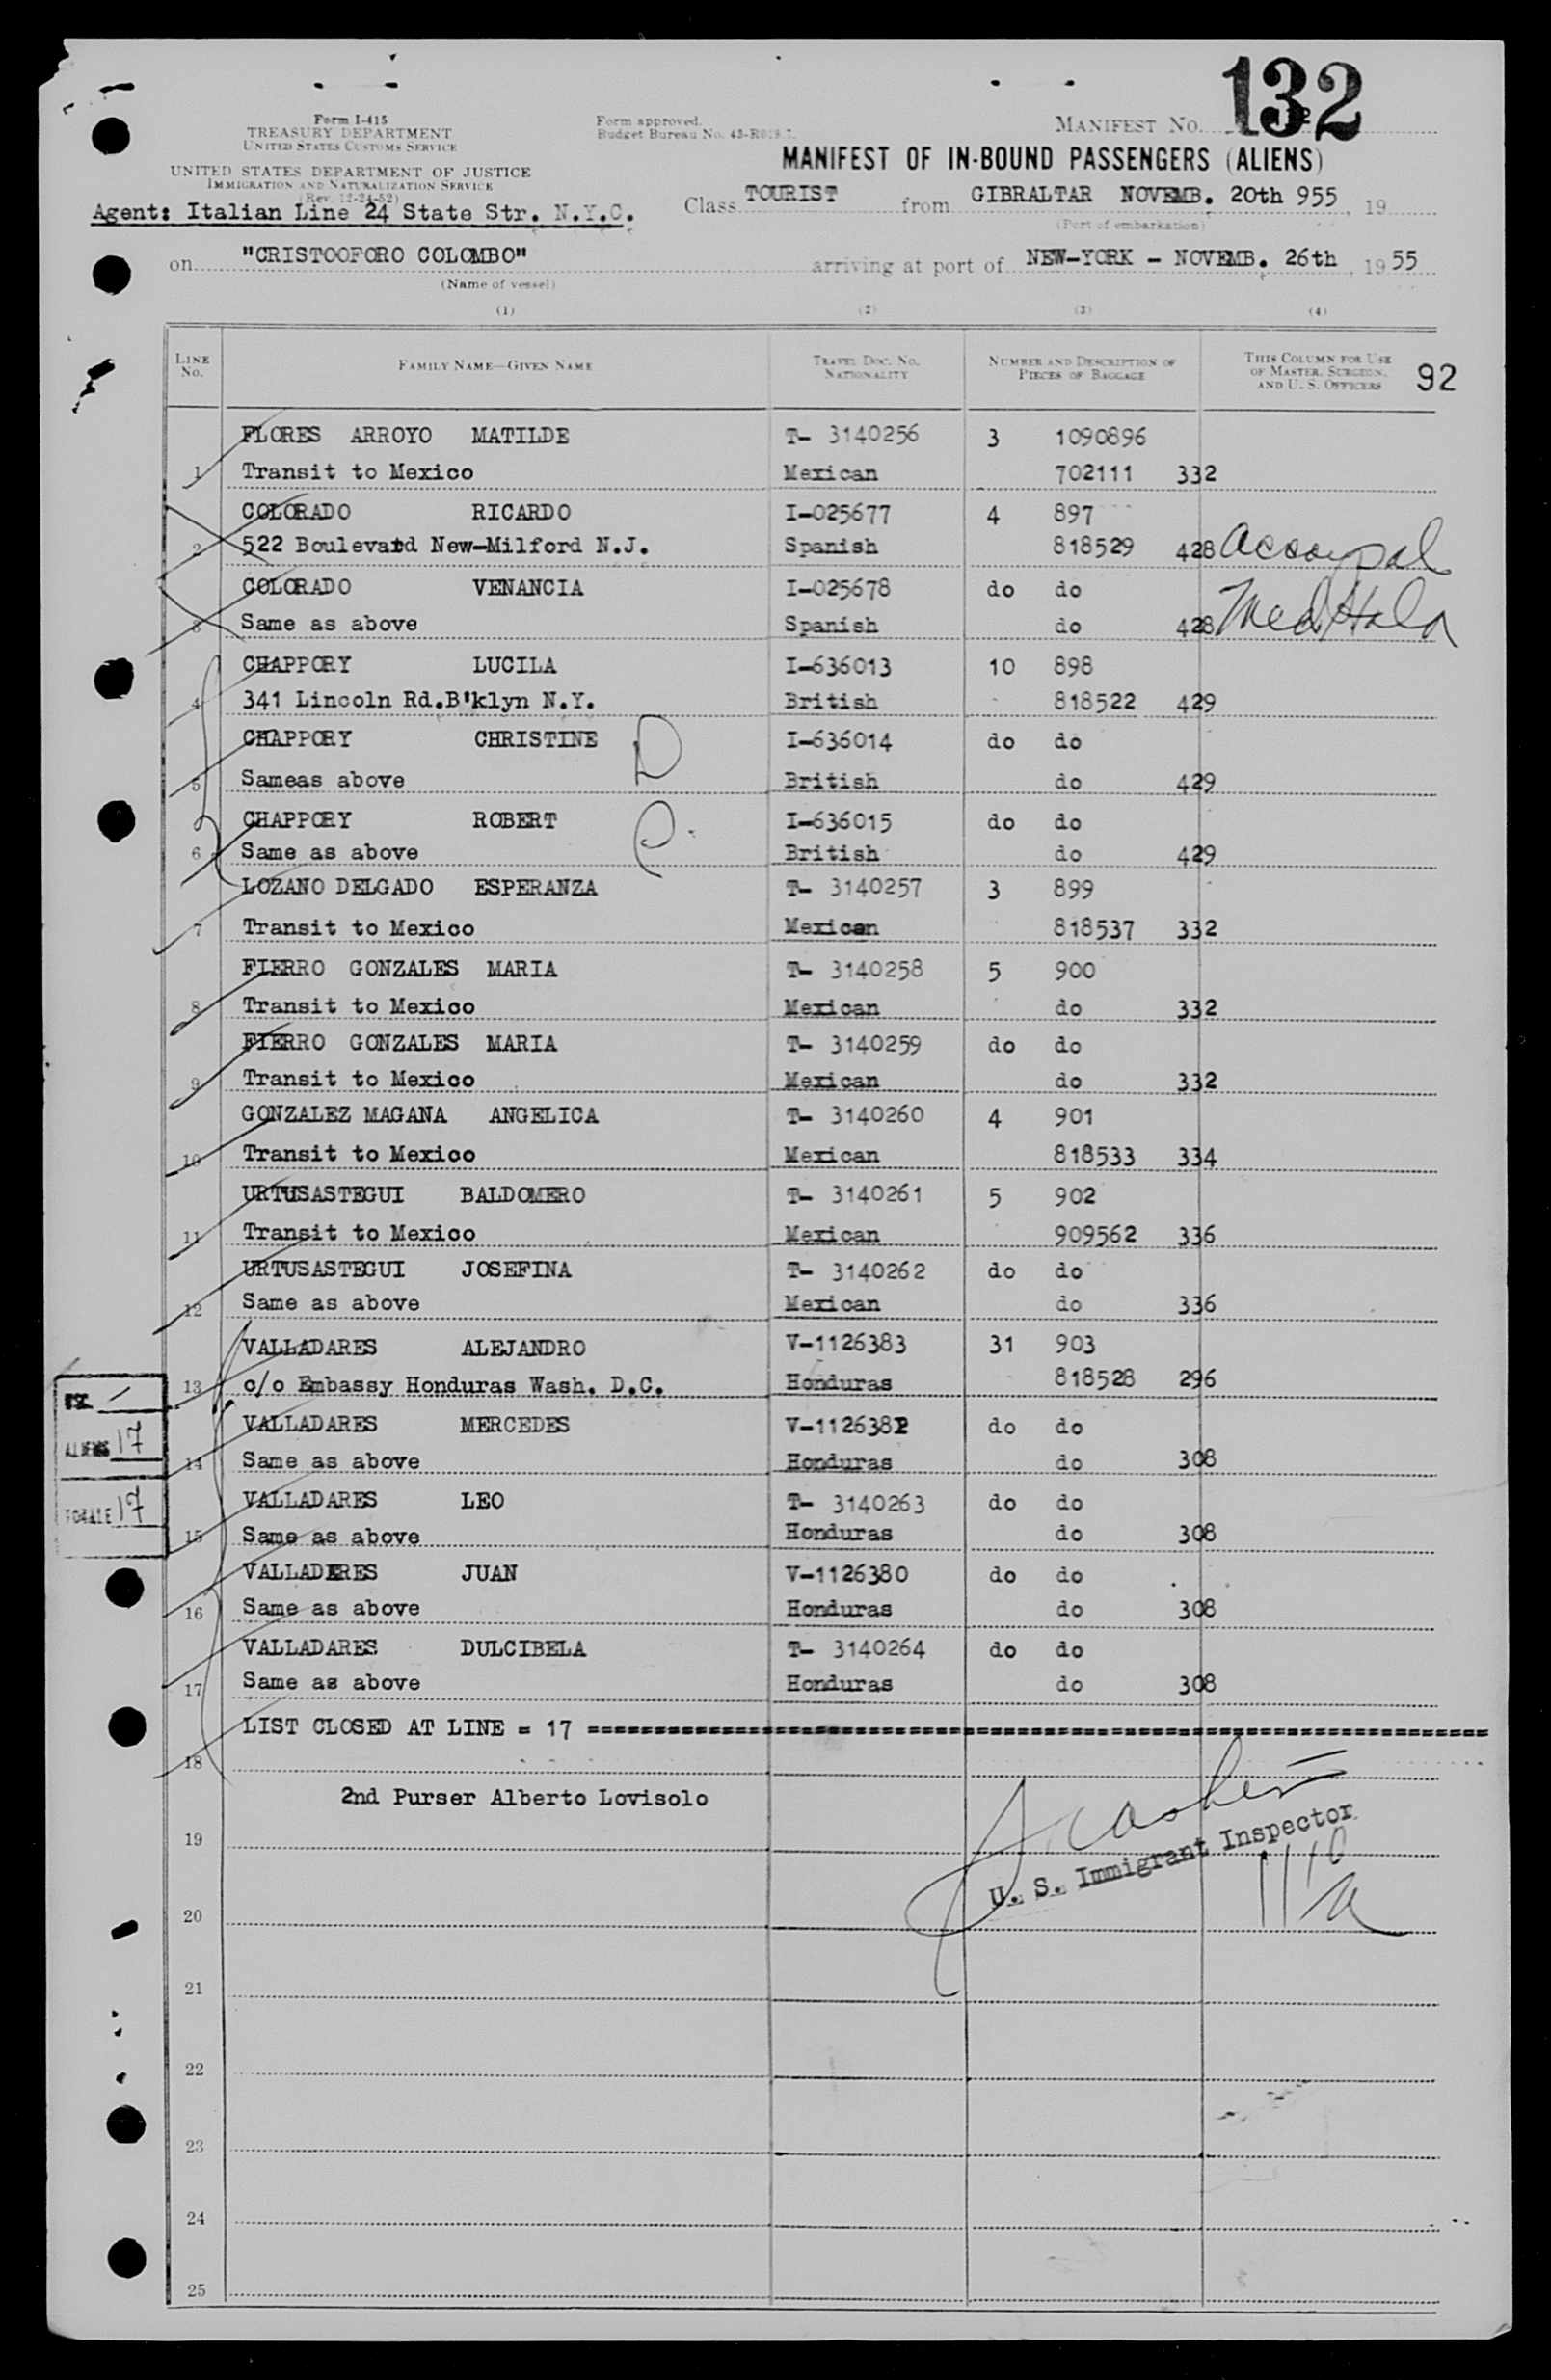 132
Form I-415
TREASURY DEPARTMENT
UNITED STATES CUSTOMS SERVICE
Form approved.
Budget Bureau No.
MANIFEST No.
UNITED STATES DEPARTMENT OF JUSTICE
IMMIGRATION AND NATURALIZATION SERVICE
(Rev. 12-24-52)
MANIFEST OF IN-BOUND PASSENGERS (ALIENS)
Agent: Italian Line 24 State Str. N.Y.C.
Class TOURIST from GIBRALTAR NOVEMB. 20th 955, 19
(Port of embarkation)
on "CRISTOOFORO COLOMBO" arriving at port of NEW-YORK - NOVEMB. 26th, 1955
(Name of vessel)
(1) (2) (3) (4)
LINE No. FAMILY NAME—GIVEN NAME TRAVEL DOC. No. NATIONALITY NUMBER AND DESCRIPTION OF PIECES OF BAGGAGE THIS COLUMN FOR USE OF MASTER, SURGEON, AND U. S. OFFICERS 92
FLORES ARROYO MATILDE T- 3140256 3 1090896
1 Transit to Mexico Mexican 702111 332
COLORADO RICARDO I-025677 4 897
2 522 Boulevard New-Milford N.J. Spanish 818529 428
COLORADO VENANCIA I-025678 do do
3 Same as above Spanish do 428 Med Hold
CHAPPORY LUCILA I-636013 10 898
4 341 Lincoln Rd.B'klyn N.Y. British 818522 429
CHAPPORY CHRISTINE I-636014 do do
5 Sameas above British do 429
CHAPPORY ROBERT I-636015 do do
6 Same as above British do 429
LOZANO DELGADO ESPERANZA T- 3140257 3 899
7 Transit to Mexico Mexican 818537 332
FIERRO GONZALES MARIA T- 3140258 5 900
8 Transit to Mexico Mexican do 332
FIERRO GONZALES MARIA T- 3140259 do do
9 Transit to Mexico Mexican do 332
GONZALEZ MAGANA ANGELICA T- 3140260 4 901
10 Transit to Mexico Mexican 818533 334
URTUSASTEGUI BALDOMERO T- 3140261 5 902
11 Transit to Mexico Mexican 909562 336
URTUSASTEGUI JOSEFINA T- 3140262 do do
12 Same as above Mexican do 336
VALLADARES ALEJANDRO V-1126383 31 903
13 c/o Embassy Honduras Wash. D.C. Honduras 818528 296
VALLADARES MERCEDES V-1126382 do do
14 Same as above Honduras do 308
ALIENS 17
VALLADARES LEO T- 3140263 do do
15 Same as above Honduras do 308
TOTALE 17
VALLADERES JUAN V-1126380 do do
16 Same as above Honduras do 308
VALLADARES DULCIBELA T- 3140264 do do
17 Same as above Honduras do 308
LIST CLOSED AT LINE = 17 ====================
18
2nd Purser Alberto Lovisolo
19
U. S. Immigrant Inspector
20
21
22
23
24
25